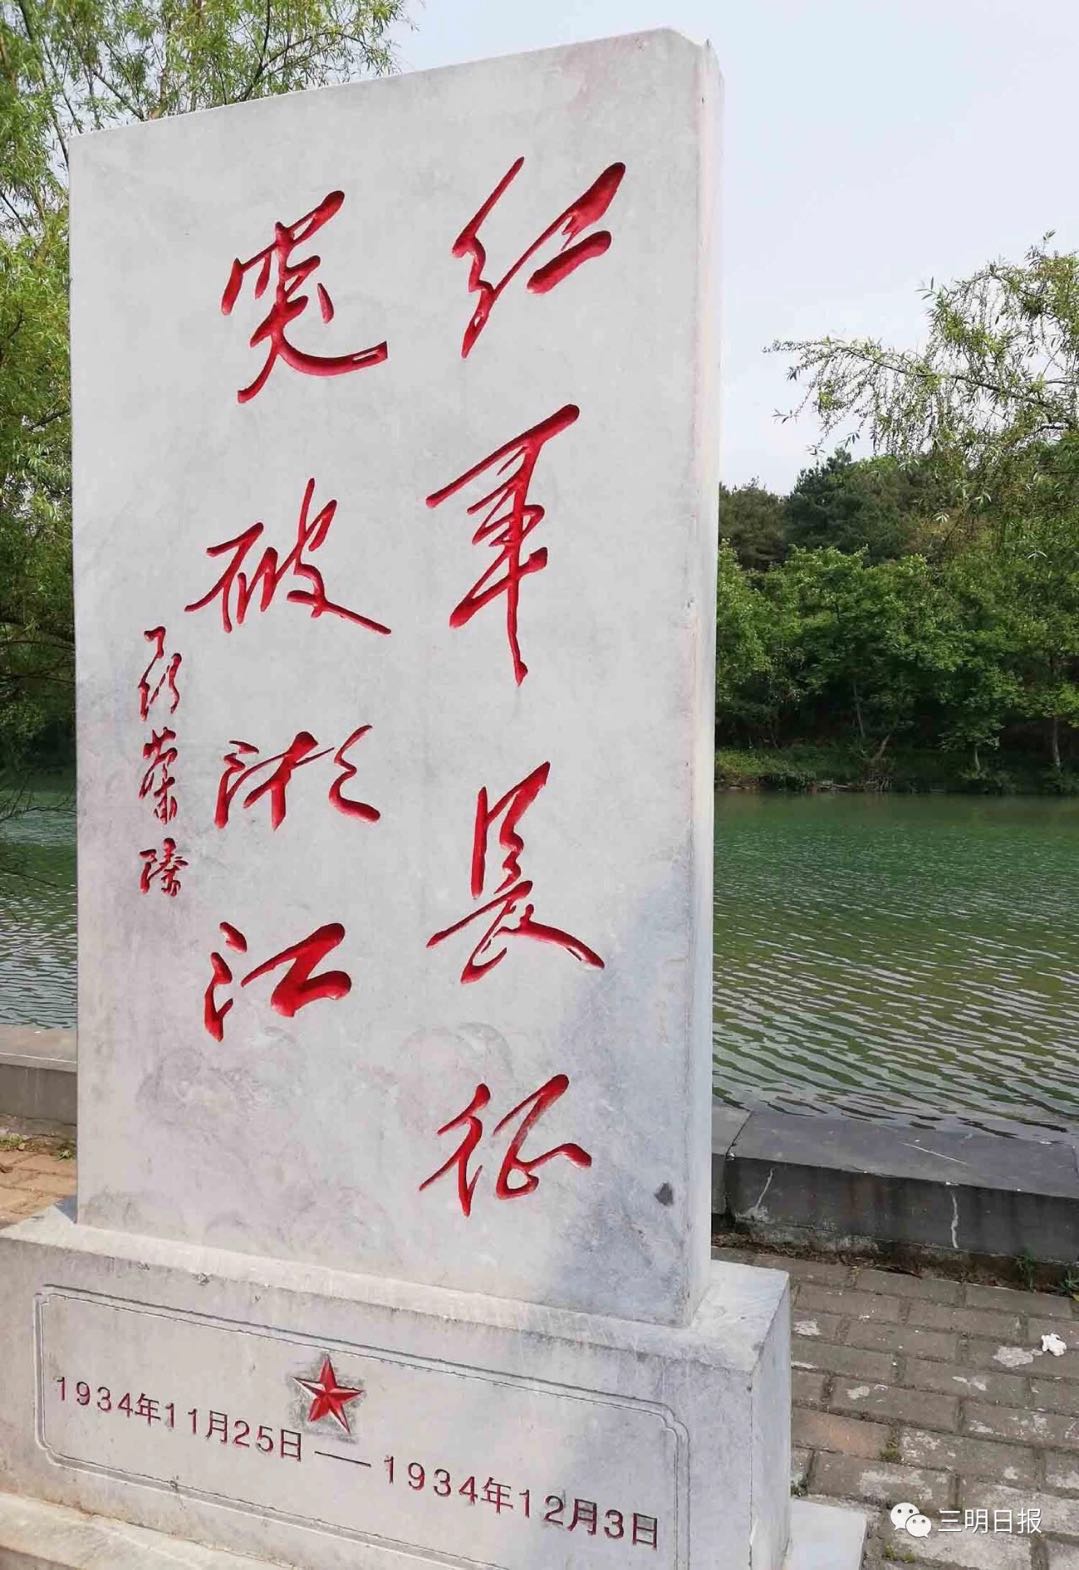 红军长征
突破湘江
聂荣臻
1934年11月25日——1934年12月3日
三明日报